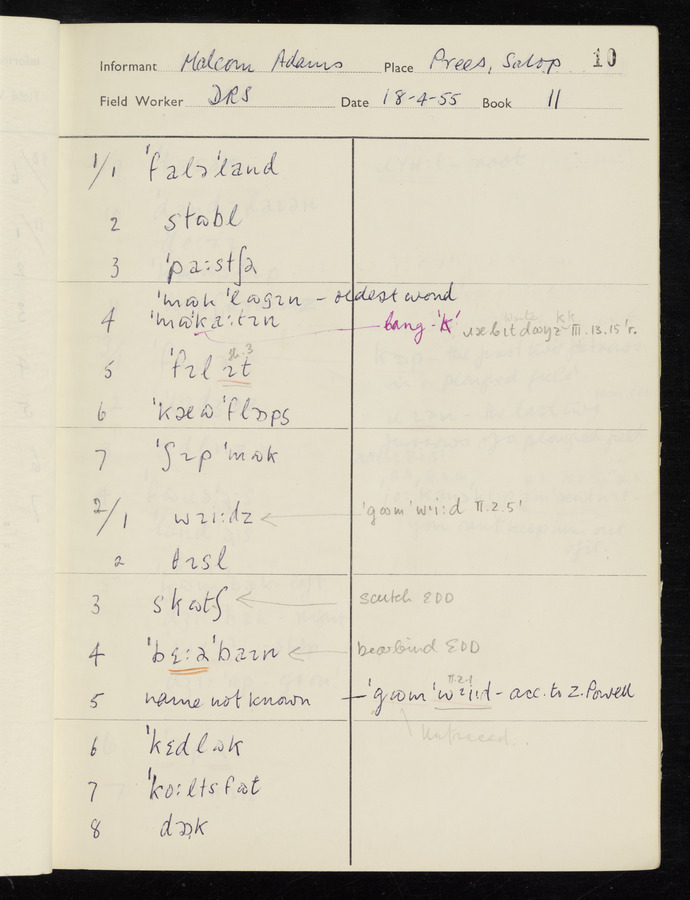 Informant Malcom Adams Place Prees, Salop 10
Field Worker DRS Date 18-4-55 Book 11
1/1 ˈfaləˈland
2 stɷbl
3 ˈpaːstʃə
ˈmɷkˈ – oldest word
4 lang. 'k' III.13.15 'r.
5 ˈfɪlɪt II.3
6 ˈkæɷˈflɒps
7 ˈʃɪpˈmɷk
2/1 wɪiːdz ˈgɷomˈwiːd II.2.5'
2 θɪsl
3 skɷtʃ scutch EDD
4 ˈbɛːəˈbaɪn bearbind EDD
II.2.1
5 name not known – ˈgɷomˈwɪiːd – acc. to Z. Powell
Untraced.
6 ˈkɛdlɷk
7 ˈkoːltsfɷt
8 dɒk